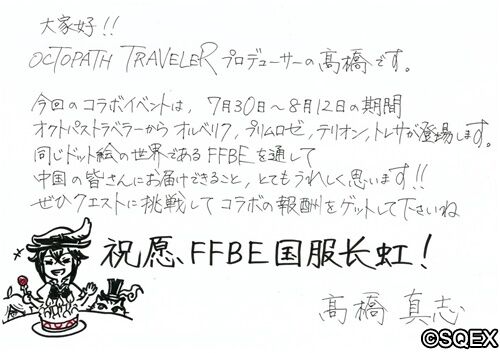 大家好!!
OCTOPATH TRAVELERプロデューサーの髙橋です。
今回のコラボイベントは、7月30日～8月12日の期間
オクトパストラベラーから オルベリク,プリムロゼ,テリオン,トレサが登場します。
同じドット絵の世界であるFFBEを通して
中国の皆さんにお届けできること,とてもうれしく思います!!
ぜひクエストに挑戦してコラボの報酬をゲットして下さいね
祝愿、FFBE国服长虹!
髙橋 真志
©SQEX